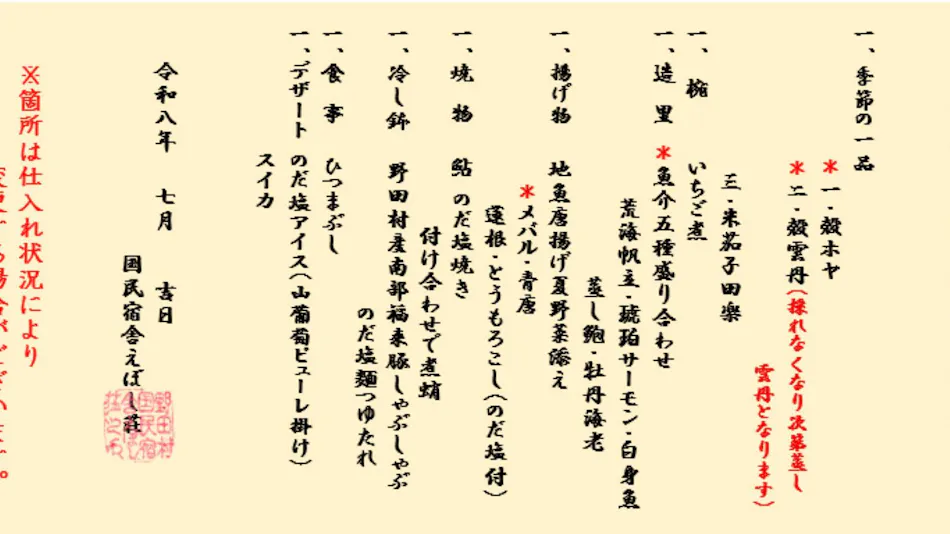 一、季節の一品
＊一・殻ホヤ
＊二・殻雲丹(採れなくなり次第蒸し
雲丹となります)
三・米茄子田楽
一、椀　いちご煮
一、造里　＊魚介五種盛り合わせ
荒海帆立・琥珀サーモン・白身魚
蒸し鮑・牡丹海老
一、揚げ物　地魚唐揚げ夏野菜添え
＊メバル・青唐
蓮根・とうもろこし(のだ塩付)
一、焼物　鮎のだ塩焼き
付け合わせで煮蛸
一、冷し鉢　野田村産南部福来豚しゃぶしゃぶ
のだ塩麺つゆたれ
一、食事　ひつまぶし
一、デザート　のだ塩アイス(山葡萄ピューレ掛け)
スイカ
令和八年　七月　吉日
国民宿舎えぼし荘
※箇所は仕入れ状況により